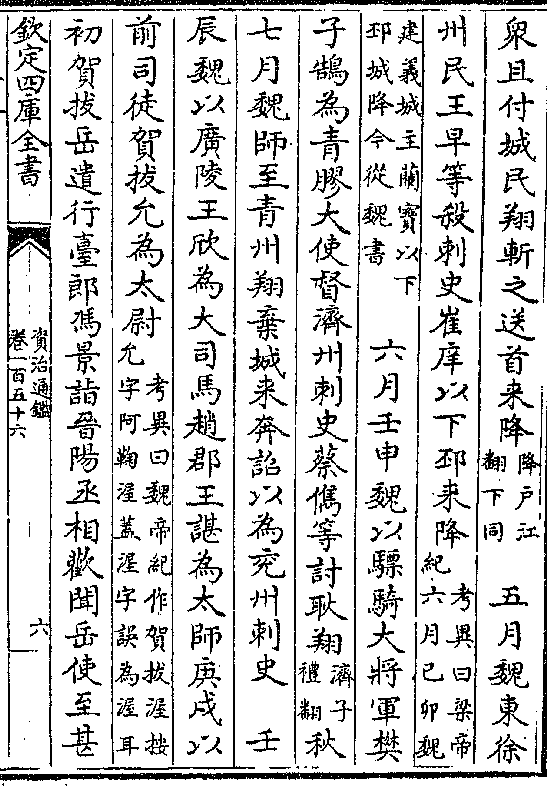 衆且付城民翔斬之送首来降降戶江翻下同　五月魏東徐
州民王早等殺刺史崔庠以下邳来降考異曰梁帝紀六月已卯魏
建義城主蘭寶以下邳城降今從魏書　六月壬申魏以驃騎大將軍樊
子鵠為青膠大使督濟州刺史蔡儁等討耿翔濟子禮翻秋
七月魏師至青州翔棄城来奔詔以為兖州刺史　壬
辰魏以廣陵王欣為大司馬趙郡王諶為太師庚戌以
前司徒賀拔允為太尉考異曰魏帝紀作賀拔渥按允字阿鞠渥蓋渥字誤為渥耳
初賀拔岳遣行臺郎馮景詣晉陽丞相歡聞岳使至甚
欽定四庫全書
資治通鑑
卷一百五十六
六